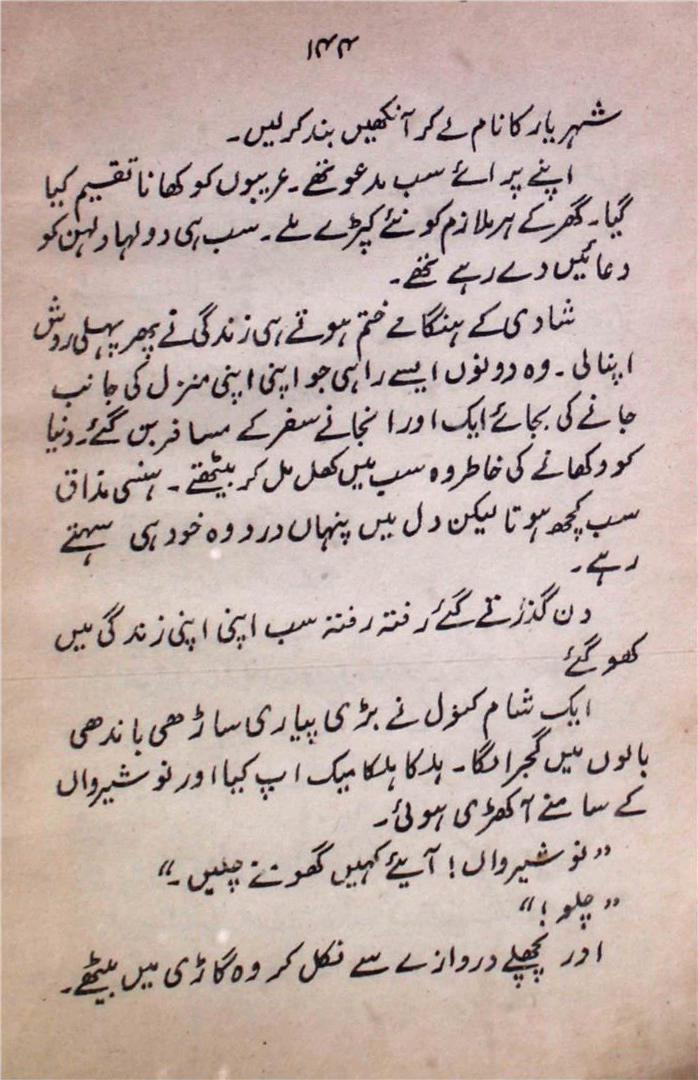 ۱۴۴
شہریار کا نام لے کر آنکھیں بند کر لیں۔
اپنے پرائے سب مدعو تھے۔ غریبوں کو کھانا تقسیم کیا
گیا۔ گھر کے ہر ملازم کو نئے کپڑے ملے۔ سب ہی دولہا دلہن کو
دعائیں دے رہے تھے۔
شادی کے ہنگامے ختم ہوتے ہی زندگی نے پھر پہلی روش
اپنا لی۔ وہ دونوں ایسے راہی جو اپنی اپنی منزل کی جانب
جانے کی بجائے ایک اور انجانے سفر کے مسافر بن گئے۔ دنیا
کو دکھانے کی خاطر وہ سب میں کھل مل کر بیٹھتے۔ ہنسی مذاق
سب کچھ ہوتا لیکن دل میں پنہاں درد وہ خود ہی سہتے
رہے۔
دن گذرتے گئے رفتہ رفتہ سب اپنی اپنی زندگی میں
کھو گئے
ایک شام کنول نے بڑی پیاری ساڑھی باندھی
بالوں میں گجرا لگا۔ ہلکا ہلکا میک اپ کیا اور نوشیرواں
کے سامنے آ کھڑی ہوئی۔
”نوشیرواں! آیئے کہیں گھومنے چلیں۔“
”چلو!“
اور پچھلے دروازے سے نکل کر وہ گاڑی میں بیٹھے۔